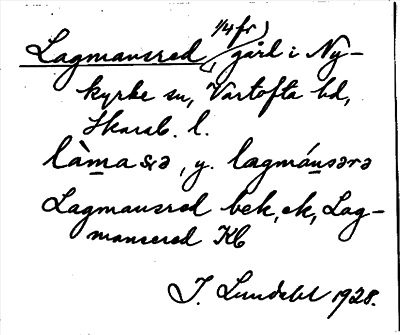 1/4 fr
Lagmansred, gård i Ny-
kyrke sn, Vartofta hd,
Skarab. l.
làmasə, y. lagmánsərə
Lagmansred bek, ek, Lag-
mansered Kb
J. Lundahl 1928.